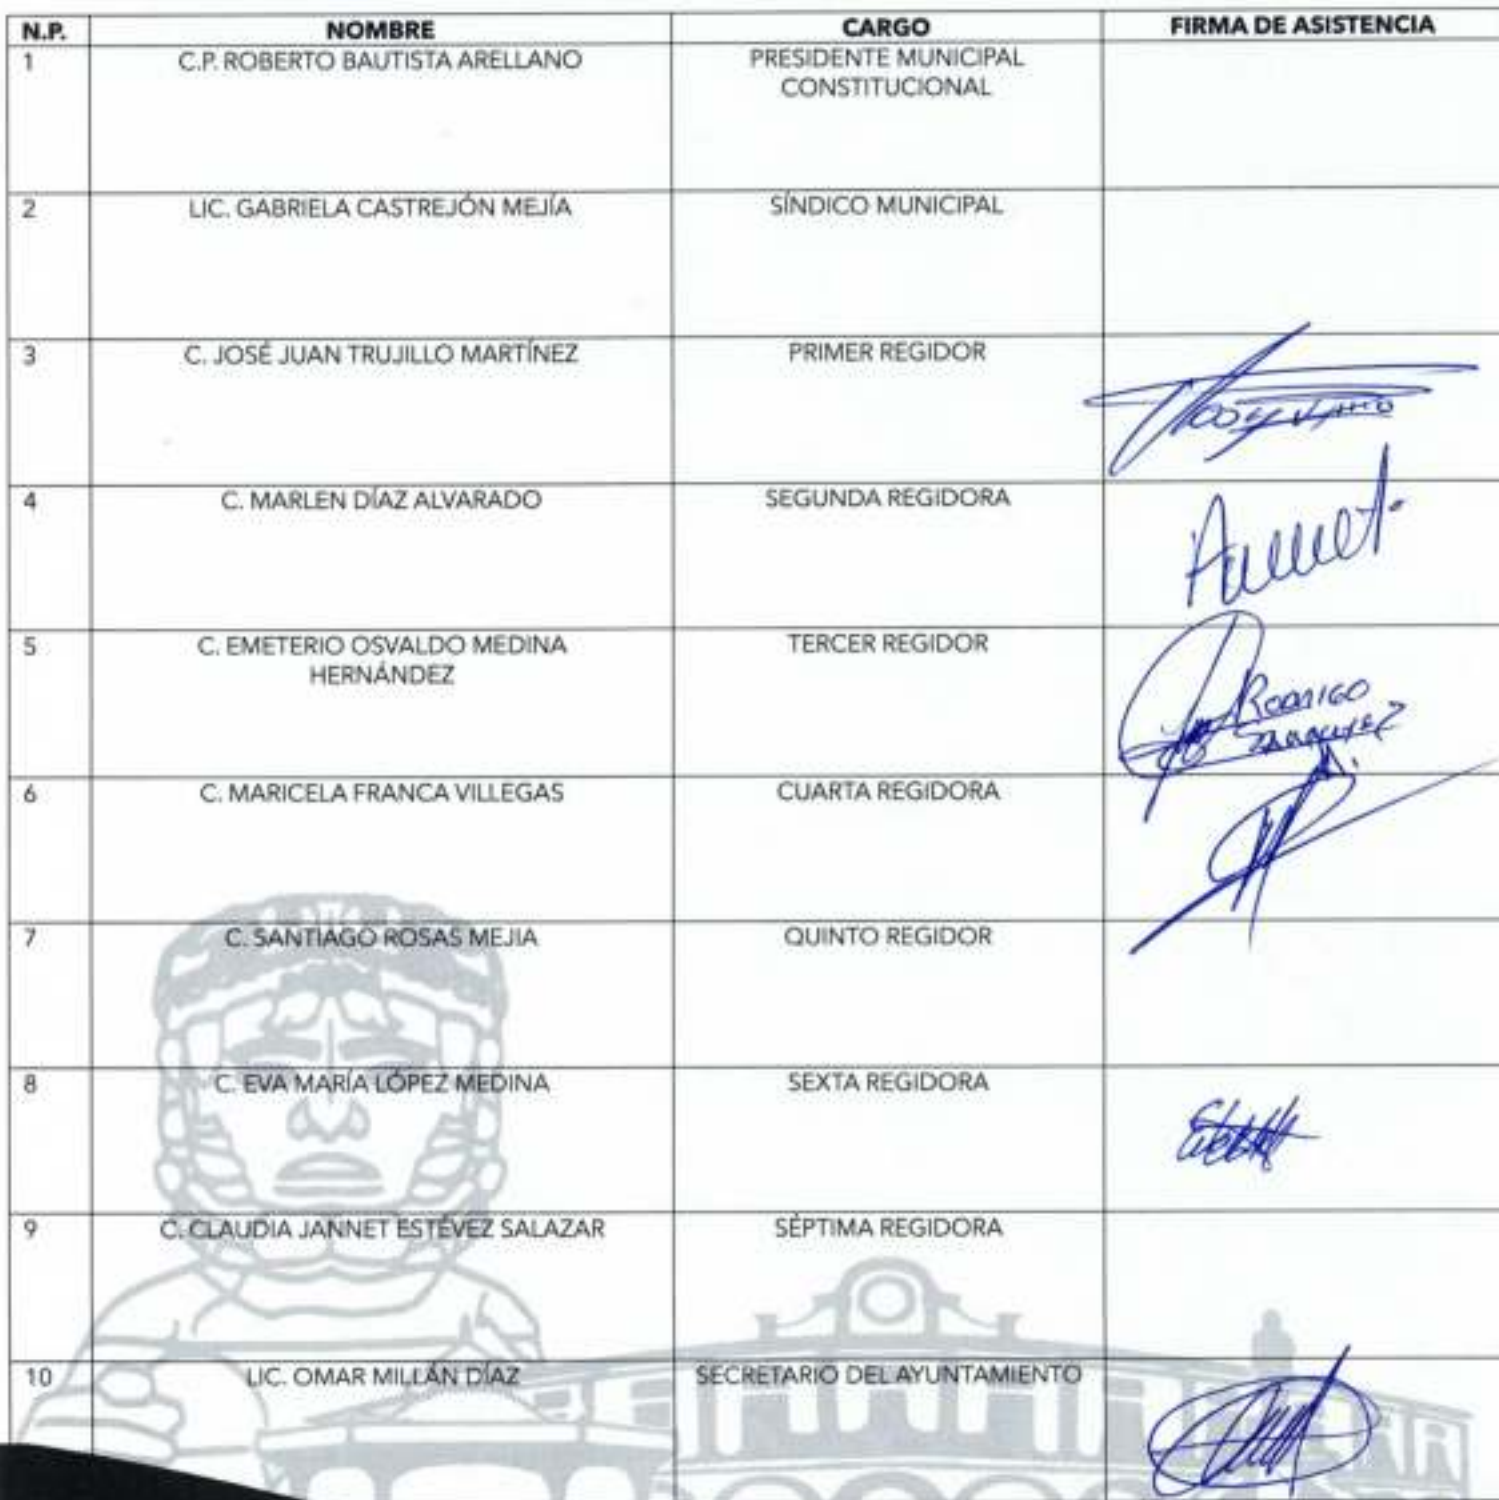 N.P. NOMBRE CARGO FIRMA DE ASISTENCIA
1 C.P. ROBERTO BAUTISTA ARELLANO PRESIDENTE MUNICIPAL
CONSTITUCIONAL
2 LIC. GABRIELA CASTREJÓN MEJÍA SÍNDICO MUNICIPAL
3 C. JOSÉ JUAN TRUJILLO MARTÍNEZ PRIMER REGIDOR
4 C. MARLEN DÍAZ ALVARADO SEGUNDA REGIDORA
5 C. EMETERIO OSVALDO MEDINA TERCER REGIDOR
HERNÁNDEZ
RODRIGO
6 C. MARICELA FRANCA VILLEGAS CUARTA REGIDORA
7 C. SANTIAGO ROSAS MEJIA QUINTO REGIDOR
8 C. EVA MARÍA LÓPEZ MEDINA SEXTA REGIDORA
9 C. CLAUDIA JANNET ESTÉVEZ SALAZAR SÉPTIMA REGIDORA
10 LIC. OMAR MILLÁN DÍAZ SECRETARIO DEL AYUNTAMIENTO